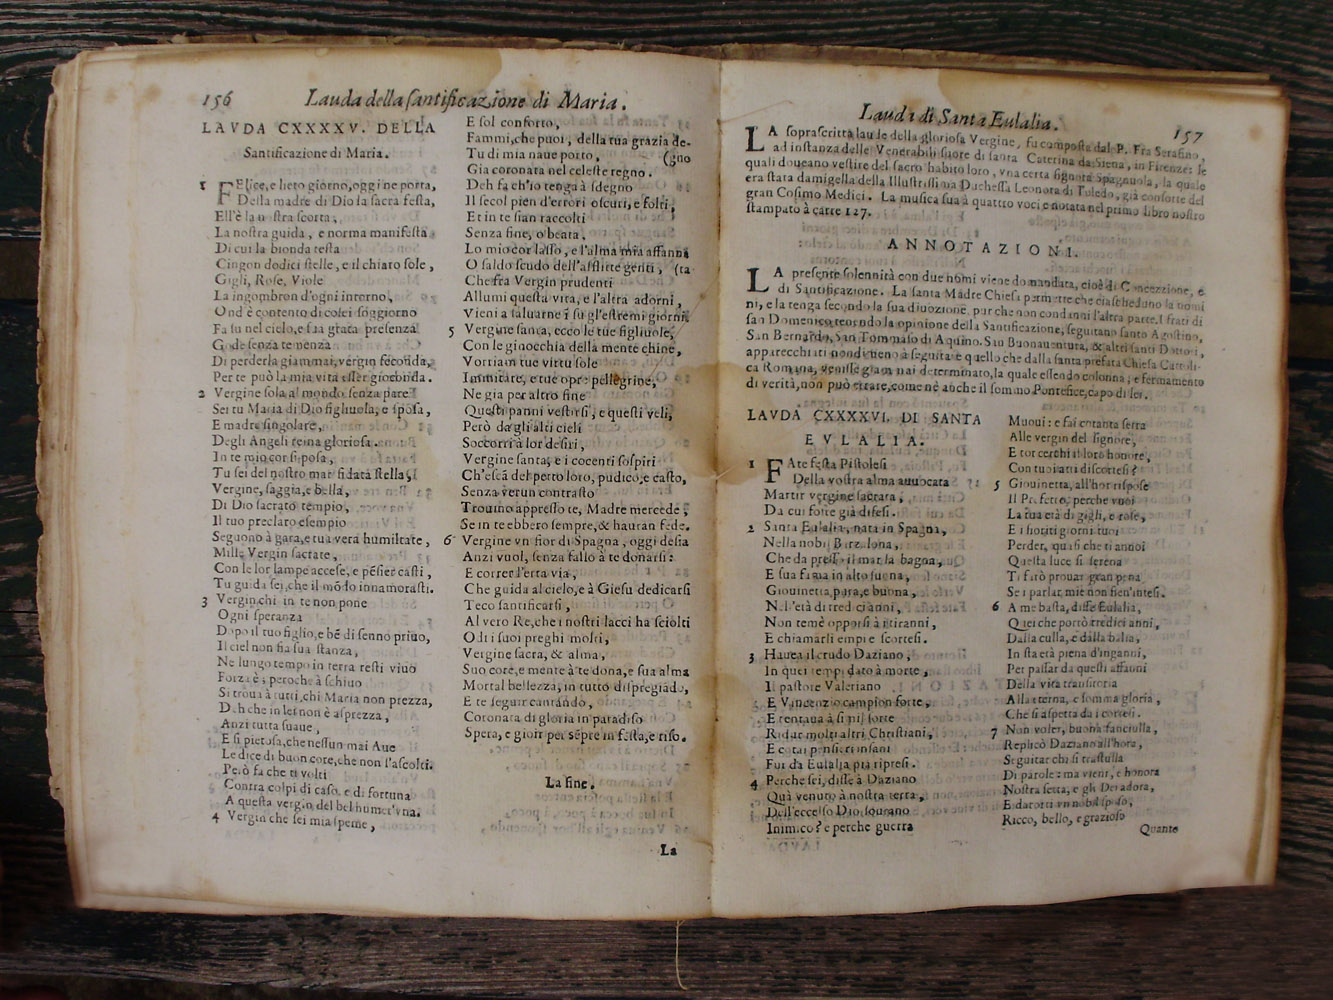 156 Lauda della santificazione di Maria.
LAVDA CXXXXV. DELLA
Santificazione di Maria.
1 FElice, e lieto giorno, oggi ne porta,
Della madre di Dio la sacra festa,
Ell'è la nostra scorta,
La nostra guida, e norma manifesta
Di cui la bionda testa
Cingon dodici stelle, e il chiaro sole,
Gigli, Rose, Viole
La ingombron d'ogni intorno,
Ond'è contento di colei soggiorno
Fa su nel cielo, e sua grata presenza
Gode senza temenza
Di perderla giammai, vergin feconda,
Per te può la mia vita esser gioconda.
2 Vergine sola al mondo senza pare
Sei tu Maria di Dio figliuola, e sposa,
E madre singolare,
Degli Angeli reina gloriosa.
In te mio cor si posa,
Tu sei del nostro mar fidata stella,
Vergine, saggia, e bella,
Di Dio sacrato tempio,
Il tuo preclaro esempio
Seguono à gara, e tua vera humiltate,
Mille Vergin sacrate,
Con le lor lampe accese, e pēsier casti,
Tu guida sei, che il mōdo innamorasti.
3 Vergin, chi in te non pone
Ogni speranza
Dopo il tuo figlio, e bē di senno priuo,
Il ciel non fia sua stanza,
Ne lungo tempo in terra resti viuo
Forz'è; peroche à schiuo
Si troui à tutti, chi Maria non prezza,
Deh che in lei non è asprezza,
Anzi tutta suaue,
E si pietosa, che nessun mai Aue
Le dice di buon core, che non l'ascolti.
Però fa che ti volti
Contra colpi di caso, e di fortuna
A questa vergin del bel numer'vna.
4 Vergin che sei mia speme,
E sol conforto,
Fammi, che puoi, della tua grazia de-
Tu di mia naue porto, (gno
Gia coronata nel celeste regno.
Deh fa ch'io tenga à sdegno
Il secol pien d'errori oscuri, e folti,
Et in te sian raccolti
Senza fine, o beata.
Lo mio cor lasso, e l'alma mia affanna
O saldo scudo dell'afflitte genti, (ta
Che fra Vergin prudenti
Allumi questa vita, e l'altra adorni,
Vieni a saluarne ī su gl'estremi giorni.
5 Vergine santa, ecco le tue figliuole,
Con le ginocchia della mente chine,
Vorrian tue virtu sole
Immitare, e tue opre pellegrine,
Ne gia per altro fine
Questi panni vestirsi, e questi veli,
Però dagli alti cieli
Soccorri à lor desiri,
Vergine santa, e i cocenti sospiri
Ch'escā del petto loro, pudico, e casto,
Senza verun contrasto
Trouino appresso te, Madre mercede,
Se in te ebbero sempre, & hauran fede.
6 Vergine vn fior di Spagna, oggi desia
Anzi vuol, senza fallo à te donarsi:
E correr l'erta via,
Che guida al cielo, e à Giesu dedicarsi
Teco santificarsi,
Al vero Re, che i nostri lacci ha sciolti
Odi i suoi preghi molti,
Vergine sacra, & alma,
Suo core, e mente à te dona, e sua alma
Mortal bellezza, in tutto dispregiado,
E te seguir cantando,
Coronata di gloria in paradiso
Spera, e gioir per sēpre in festa, e riso.
La fine.
La
Laudi di Santa Eulalia. 157
LA soprascritta laude della gloriosa Vergine, fu composta dal P. Fra Serafino,
ad instanza delle Venerabili suore di santa Caterina da Siena, in Firenze: le
quali doueano vestire del sacro habito loro, vna certa signora Spagnuola, la quale
era stata damigella della Illustrissima Duchessa Leonora di Toledo, già consorte del
gran Cosimo Medici. La musica sua à quattro voci e notata nel primo libro nostro
stampato à carte 127.
ANNOTAZIONI.
LA presente solennità con due nomi viene domandata, cioè di Concezzione, e
di Santificazione. La santa Madre Chiesa permette che ciascheduno la nomi
ni, e la tenga secondo la sua diuozione, pur che non condanni l'altra parte. I frati di
san Domenico tenendo la opinione della Santificazione, seguitano santo Agostino,
San Bernardo, San Tommaso di Aquino, San Buonauentura, & altri santi Dottori,
apparecchiati nondimeno à seguitare quello che dalla santa prefata Chiesa Cattoli-
ca Romana, venisse giammai determinato, la quale essendo colonna, e fermamento
di verità, non può errare, come nè anche il sommo Pontefice, capo di lei.
LAVDA CXXXXVI. DI SANTA
EVLALIA.
1 FAte festa Pistolesi
Della vostra alma auuocata
Martir vergine sacrata,
Da cui foste già difesi.
2 Santa Eulalia, nata in Spagna,
Nella nobil Barzalona,
Che da presso il mar la bagna,
E sua fama in alto suona,
Giouinetta, pura, e buona,
Nell'età di tredici anni,
Non temè opporsi à i tiranni,
E chiamarli empi e scortesi.
3 Hauea il crudo Daziano,
In quei tempi dato à morte,
Il pastore Valeriano
E Vincenzio campion forte,
E tentaua à simil sorte
Ridur molti altri Christiani,
E cotai pensieri insani
Fur da Eulalia pia ripresi.
4 Perche sei, disse à Daziano
Quà venuto à nostra terra,
Dell'eccelso Dio sourano
Inimico? e perche guerra
Muoui: e fai cotanta serra
Alle vergin del signore,
E tor cerchi il loro honore,
Con tuoi atti discortesi?
5 Giouinetta, all'hor rispose
Il Prefetto, perche vuoi
La tua età di gigli, e rose,
E i fioriti giorni tuoi
Perder, quasi che ti annoi
Questa luce si serena
Ti farò prouar gran pena
Se i parlar miei non hen'intesi.
6 A me basta, disse Eulalia,
Quei che portò tredici anni,
Dalla culla, e dalla balia,
In sta età piena d'inganni,
Per passar da questi affanni
Della vita transitoria
Alla eterna, e somma gloria,
Che si aspetta da i cortesi.
7 Non voler, buona fanciulla,
Replicò Daziano all'hora,
Seguitar chi si trastulla
Di parole: ma vieni, e honora
Nostra setta, e gli Dei adora,
E darotti vn nobil sposo,
Ricco, bello, e grazioso
Quanto